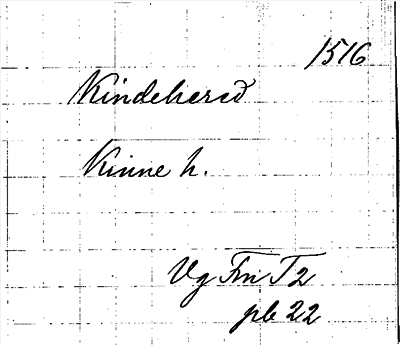 1516
Kindehersd
Kinne h.
Vg Fm T 2
pb 22